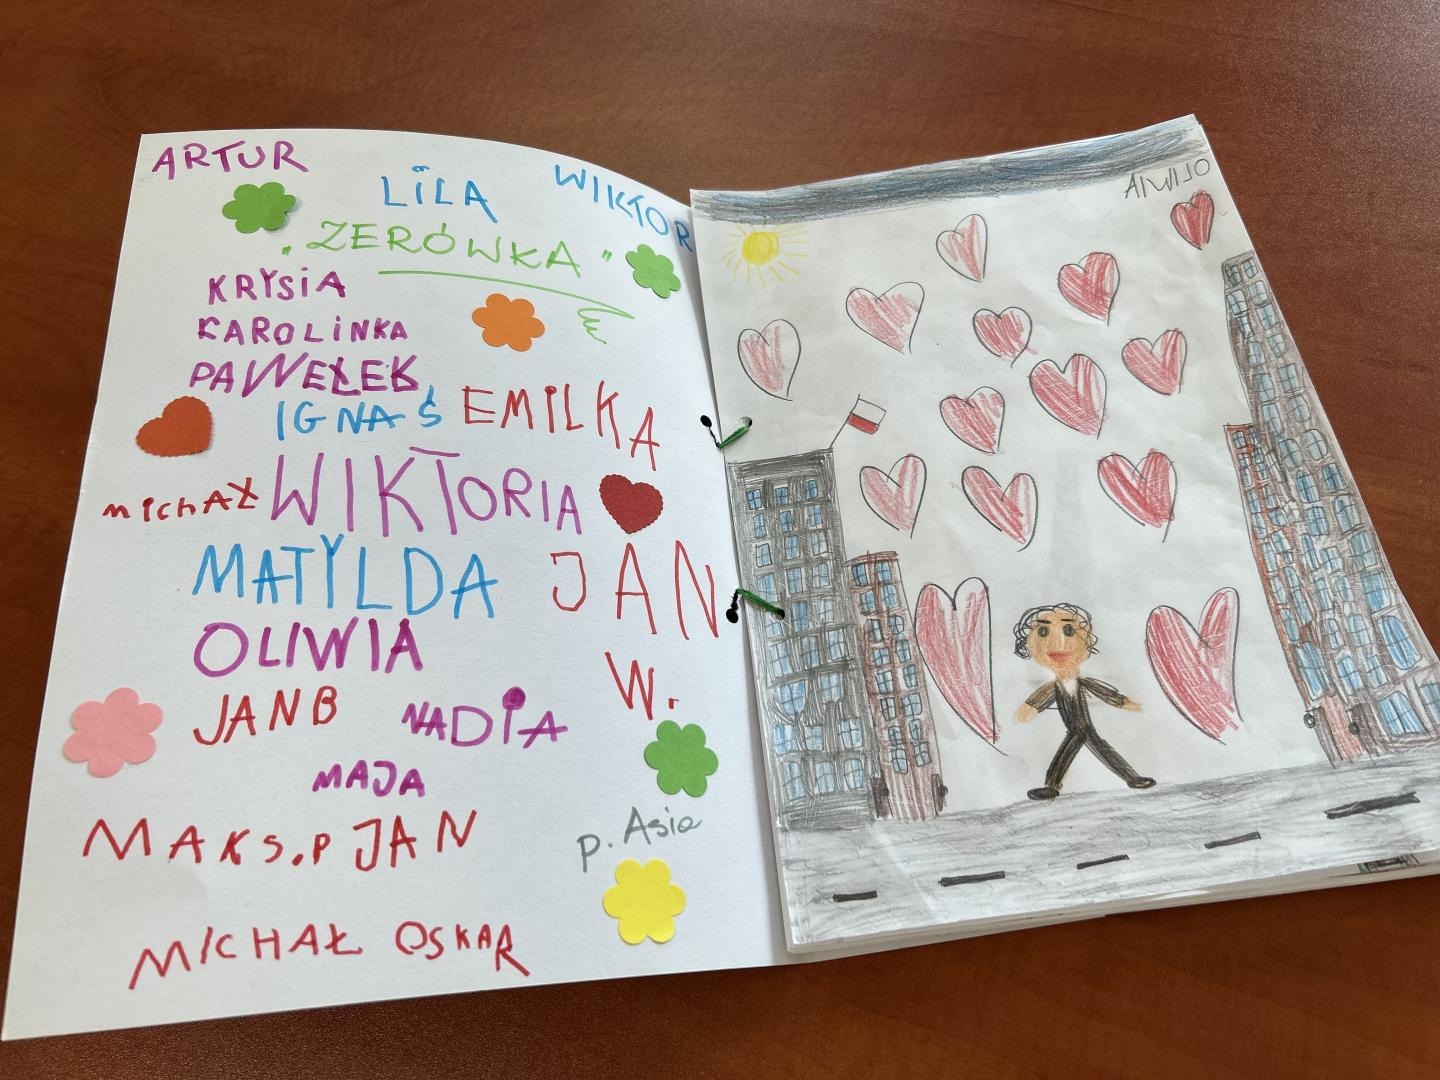 ARTUR
LILA
WIKTOR
„ZERÓWKA”
KRYSIA
KAROLINKA
PAWEŁEK
IGNAŚ EMILKA
MICHAŁ WIKTORIA
MATYLDA JAN W.
OLIWIA
JAN B NADIA
MAJA
MAKS.P JAN
p. Asia
MICHAŁ OSKAR
OLIWIA